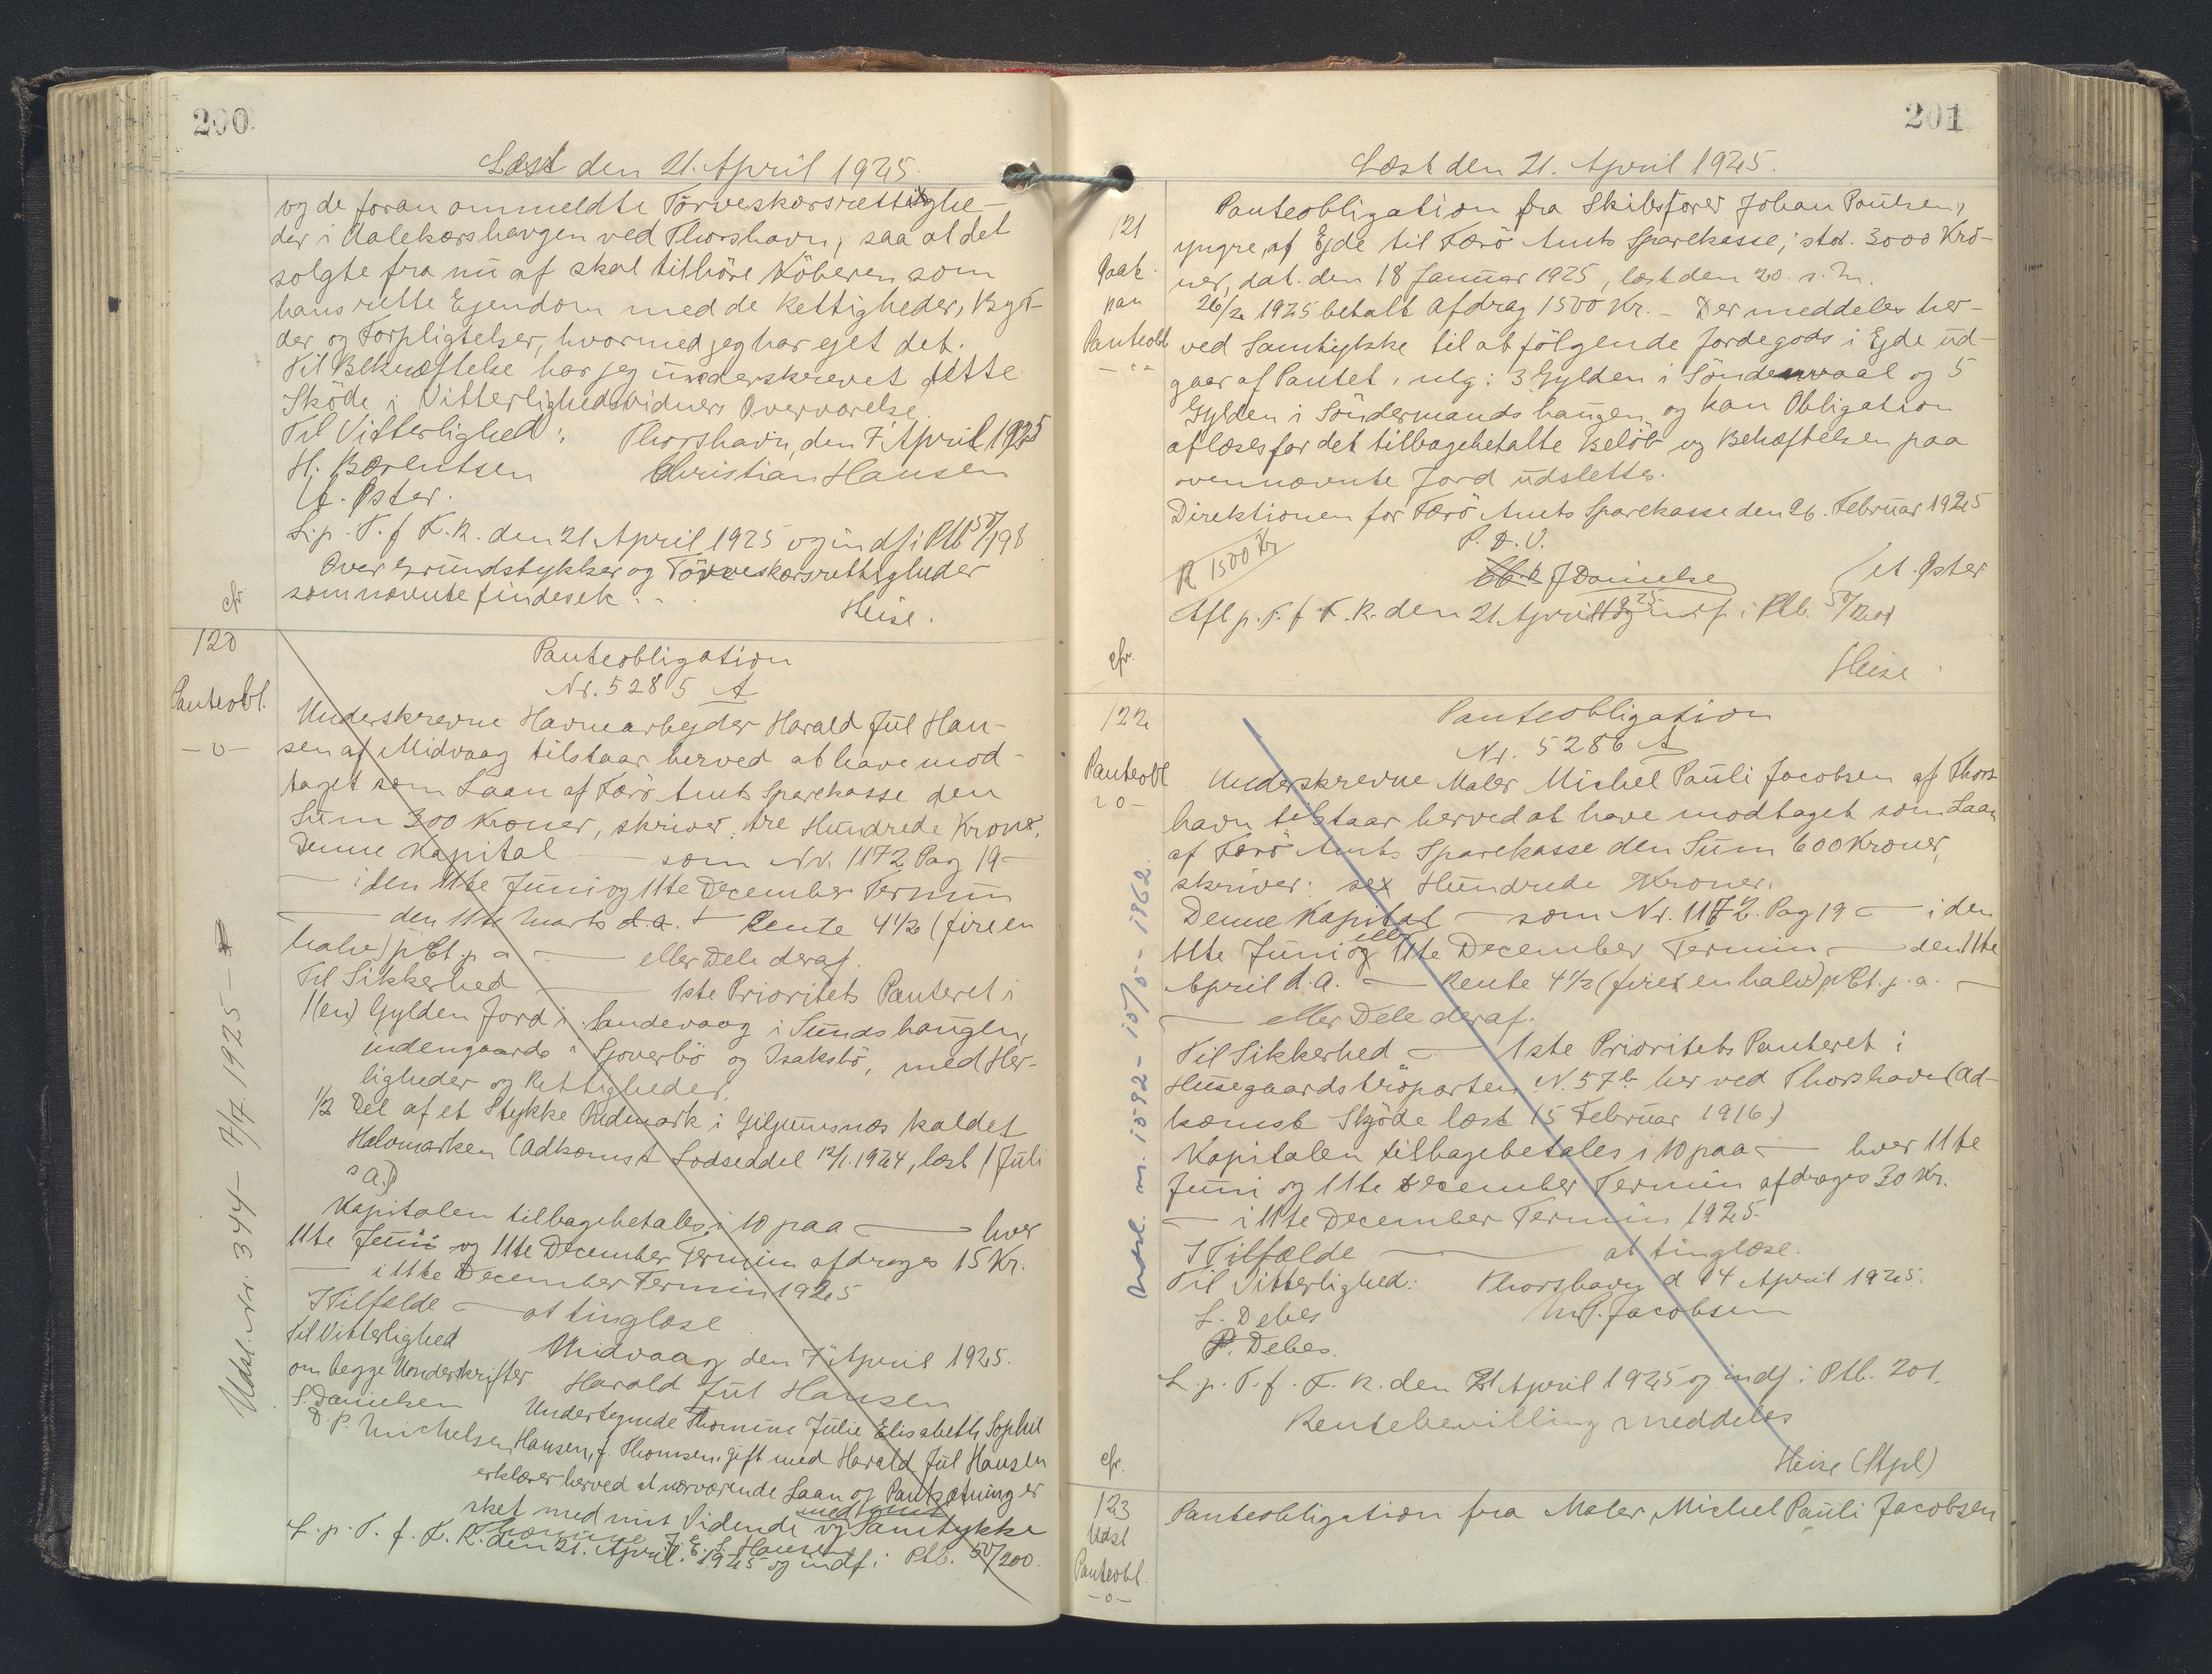 200.
Læst den 21. April 1925.
og de foran ommeldte Törveskærsrettighe-
der i Aalekærshavgen ved Thorshavn, saa at det
solgte fra nu af skal tilhöre Köberen som
hans rette Ejendom med de Rettigheder, Byr-
der og Forpligtelser, hvormed jeg har ejet det.
Til Bekræftelse har jeg underskrevet dette
Sköde i Vitterlighedsvidners Overværelse.
Til Vitterlighed: Thorshavn, den 7 April 1925
H. Bærentsen Christian Hansen
A. Öster.
L. p. T. f. F. R. den 21 April 1925 og indf i Ptb 50/198
Over Grundstykker og Törveskærsrettigheder
som nævnte findes ek
cfr Heise.
120
Panteobl.
-o-
Panteobligation
Nr. 5285 A
Underskrevne Havnearbejder Harald Jul Han-
sen af Midvaag tilstaar herved at have mod-
taget som Laan af Færö Amts Sparekasse den
Sum 300 Kroner, skriver: tre Hundrede Kroner.
Denne Kapital — som Nr. 1172 Pag 19 —
— i den 11te Juni og 11te December Termin
— den 11te Marts d.a. — Rente 4½ (fire en
halv) pCt. p a — eller Dele deraf.
Til Sikkerhed — 1ste Prioritets Panteret i
1(en) Gylden Jord i Sandevaag i Sunds haugen,
indengaards i Gjoverbö og Isaksbö, med Her-
ligheder og Rettigheder.
1/2 Del af et Stykke Rudmark i Giljumsnæs kaldet
Halvmarken (Adkomst Lodseddel 12/1. 1924, læst 1 Juli
s A.)
Kapitalen tilbagebetales i 10 paa — hver
11te Juni og 11te December Termin afdrages 15 Kr.
— i 11te December Termin 1925
I Tilfælde — at tinglæse
Til Vitterlighed Midvaag den 7 April 1925.
om begge Underskrifter Harald Jul Hansen
S. Danielsen Undertegnede Thomine Julie Elisabeth Sophie
D. P. Michelsen Hansen, f. Thomsen, gift med Harald Jul Hansen
erklærer herved at nærværende Laan og Pantsætning er
sket med mit Vidende og med mit Samtykke
Thomine J. E. S. Hansen
L. p. T. f. F. R. den 21. April 1925 og indf i Ptb. 50/200.
Udsl. Nr. 344 - 7/7 1925 -
201
Læst den 21. April 1925.
121
Paateg.
paa
Panteobl
Panteobligation fra Skibsförer Johan Poulsen,
yngre, af Ejde til Færö Amts Sparekasse, stor. 3000 Kro-
ner, dat. den 18 Januar 1925, læst den 20. s. M.
26/2 1925 betalt Afdrag 1500 Kr. - Der meddeles her-
ved Samtykke til at fölgende Jordegods i Ejde ud-
gaar af Pantet, nlg: 3 Gylden i Söndenvaal og 5
Gylden i Söndermands haugen og kan Obligation
aflæses for det tilbagebetalte Belöb og Behæftelsen paa
ovennævnte Jord udslettes.
Direktionen for Færö Amts Sparekasse den 26. Februar 1925
P. D. V.
R 1500 Kr
J Danielsen / A. Öster
Afl p. T. f. F. R. den 21 April 1925 og indf. i Ptb. 50/201
cfr. Heise
122
Panteobl
-o-
Panteobligation
Nr. 5286 A
Underskrevne Maler Michel Pauli Jacobsen af Thors
havn tilstaar herved at have modtaget som Laan
af Færö Amts Sparekasse den Sum 600 Kroner,
skriver: sex Hundrede Kroner.
Denne Kapital — som Nr. 1172. Pag 19 — i den
11te Juni og eller 11te December Termin — den 11te
April d. A. — Rente 4½ (fire en halv) pCt. p. a. —
— eller Dele deraf.
Til Sikkerhed — 1ste Prioritets Panteret i
Husegaardströparten N. 57b her ved Thorshavn (Ad-
komst Skjöde læst 15 Februar 1916.)
Kapitalen tilbagebetales i 10 paa — hver 11te
Juni og 11te December Termin afdrages 30 Kr.
— i 11te December Termin 1925.
I Tilfælde — at tinglæse.
Til Vitterlighed: Thorshavn d 14 April 1925.
L. Debes M P. Jacobsen
P. Debes.
L. p. T. f. F. R. den 21 April 1925 og indf i Ptb. 201.
Rentebevilling meddeles
cfr. Heise (Stpl)
123
Udsl
Panteobl.
-o-
Panteobligation fra Maler Michel Pauli Jacobsen